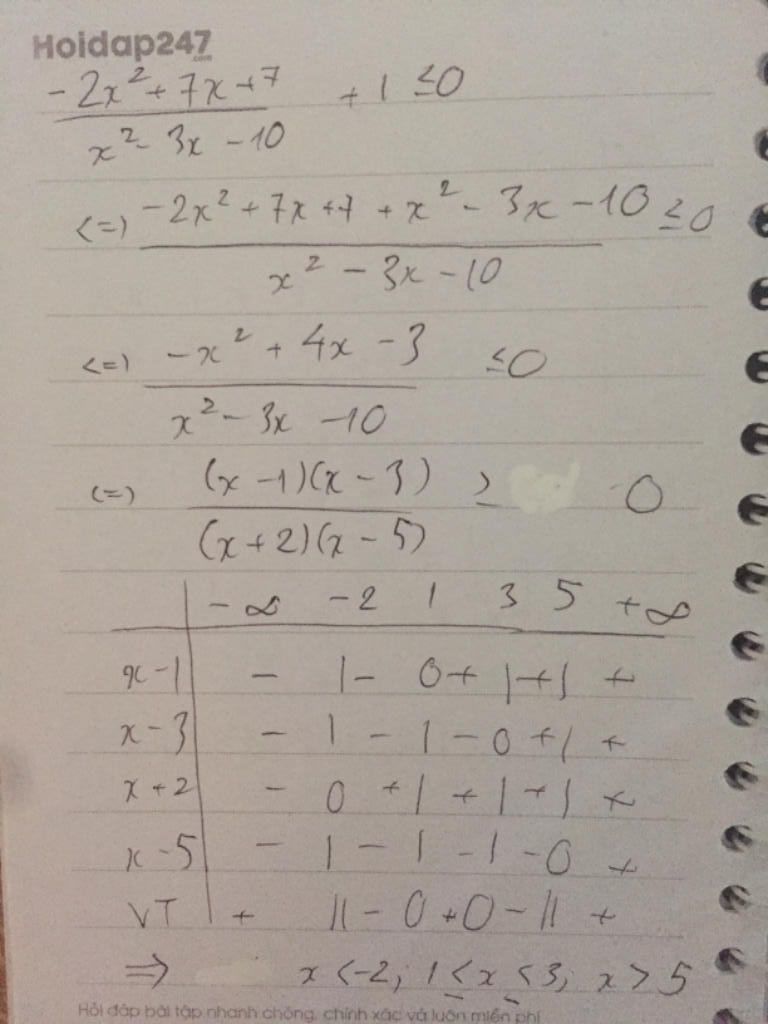 Hoidap247
.com
-2x²+7x+7 / x²-3x-10 + 1 ≤0
<=> -2x²+7x+7+x²-3x-10 / x²-3x-10 ≤0
<=> -x²+4x-3 / x²-3x-10 ≤0
<=> (x-1)(x-3) / (x+2)(x-5) ≥ 0
-∞ -2 1 3 5 +∞
x-1 - | - 0 + | + | +
x-3 - | - | - 0 + | +
x+2 - 0 + | + | + | +
x-5 - | - | - | - 0 +
VT + || - 0 + 0 - || +
=> x<-2; 1≤x≤3; x>5
Hỏi đáp bài tập nhanh chóng, chính xác và luôn miễn phí